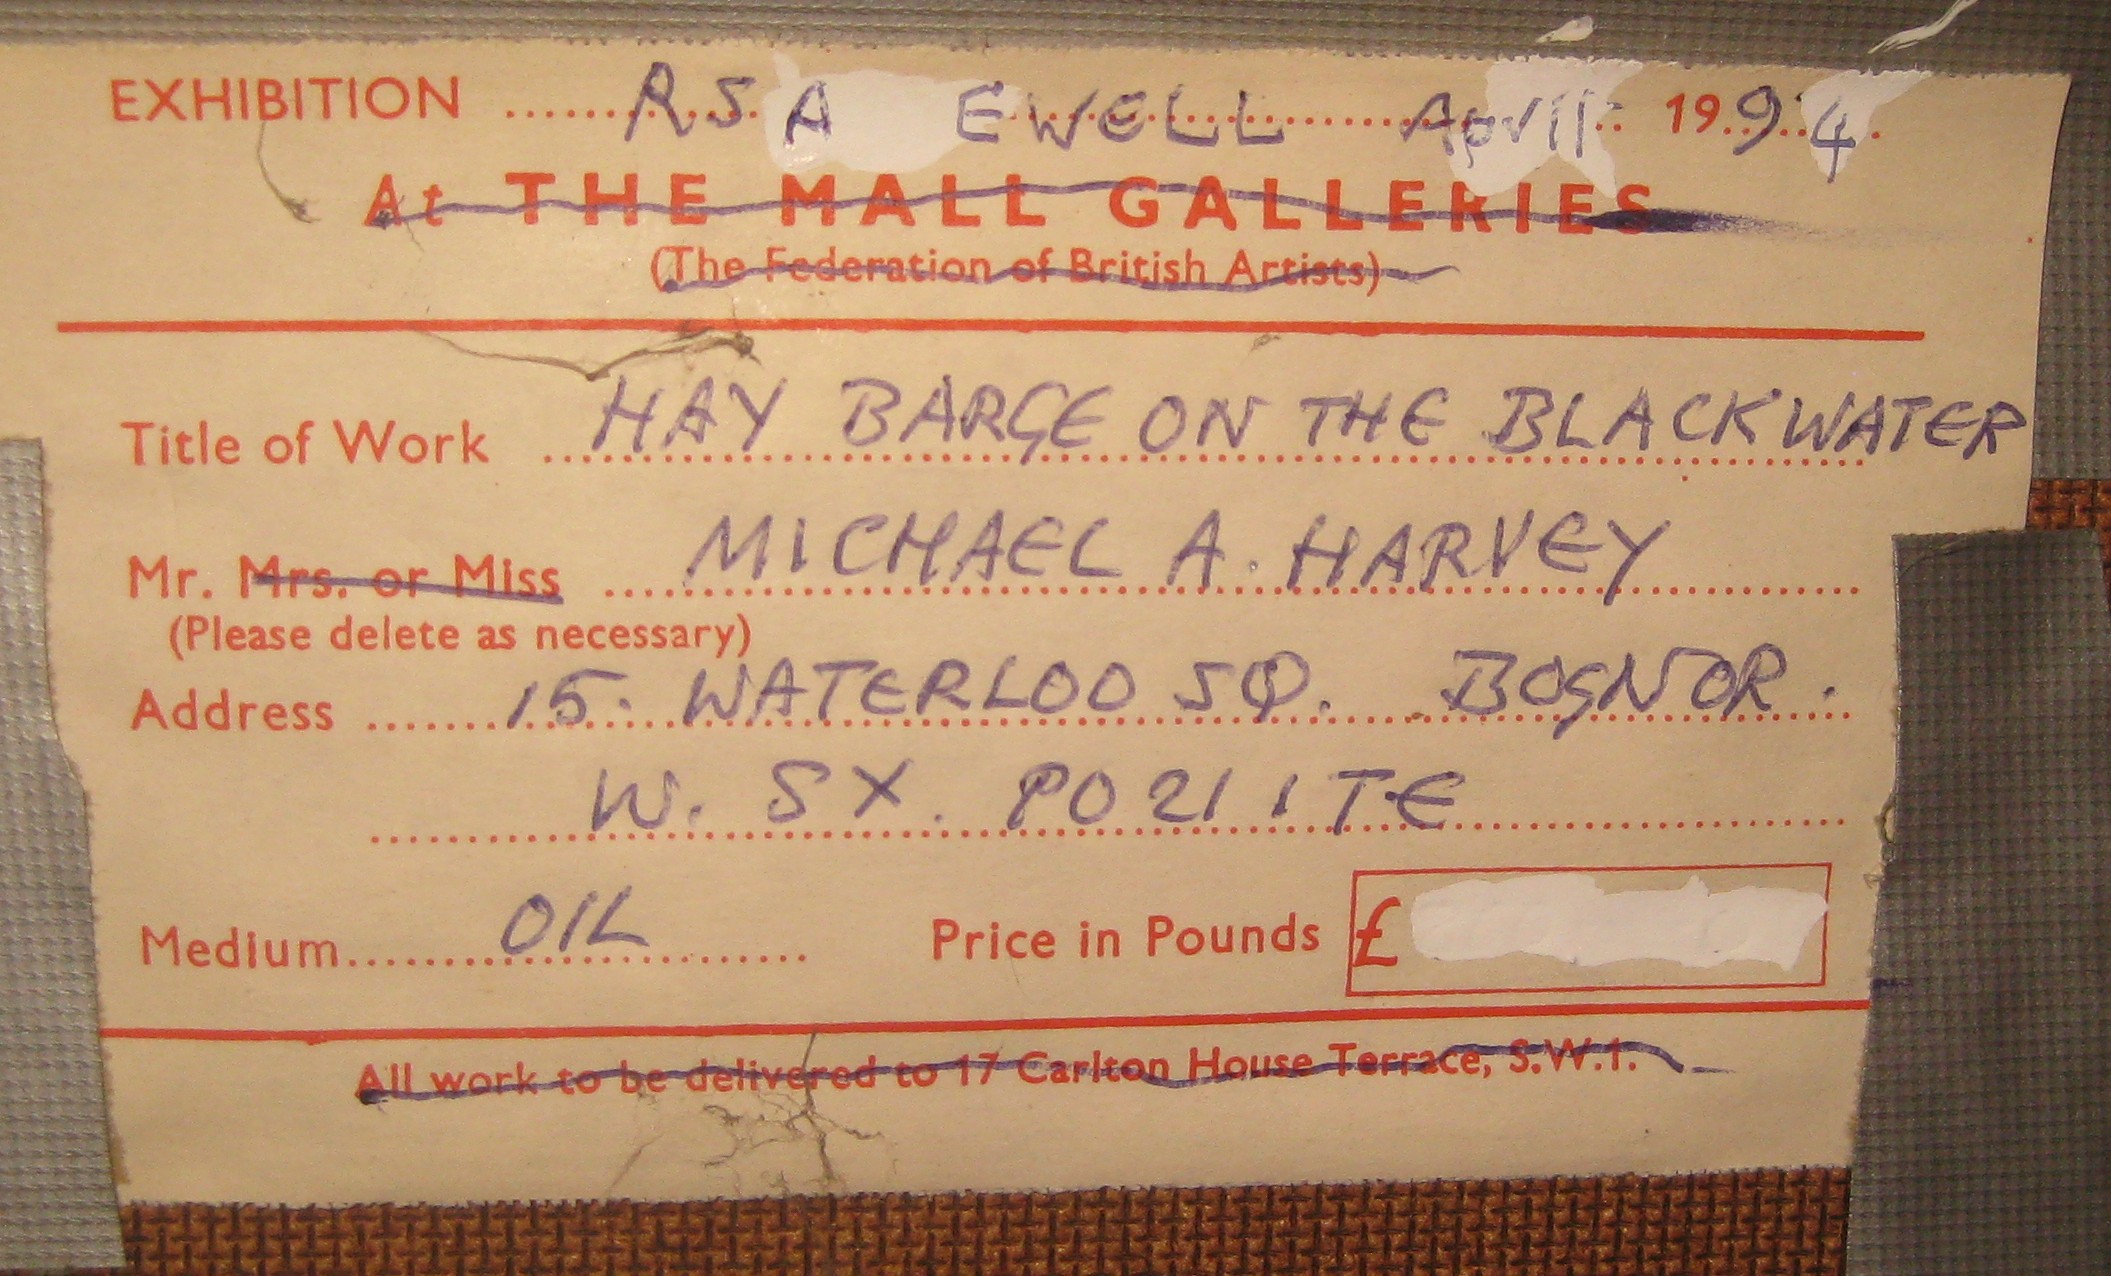 EXHIBITION RSA EWELL April 1994
At THE MALL GALLERIES
(The Federation of British Artists)
Title of Work HAY BARGE ON THE BLACKWATER
Mr. Mrs. or Miss MICHAEL A. HARVEY
(Please delete as necessary)
Address 15. WATERLOO SQ. BOGNOR.
W. SX. PO21 1TE
Medium OIL Price in Pounds £
All work to be delivered to 17 Carlton House Terrace, S.W.1.